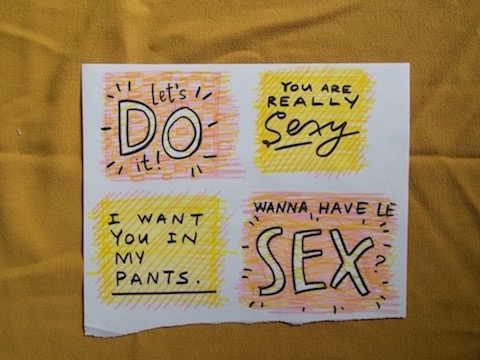 Let's
DO
it!
YOU ARE
REALLY
Sexy
I WANT
YOU IN
MY
PANTS.
WANNA HAVE LE
SEX?